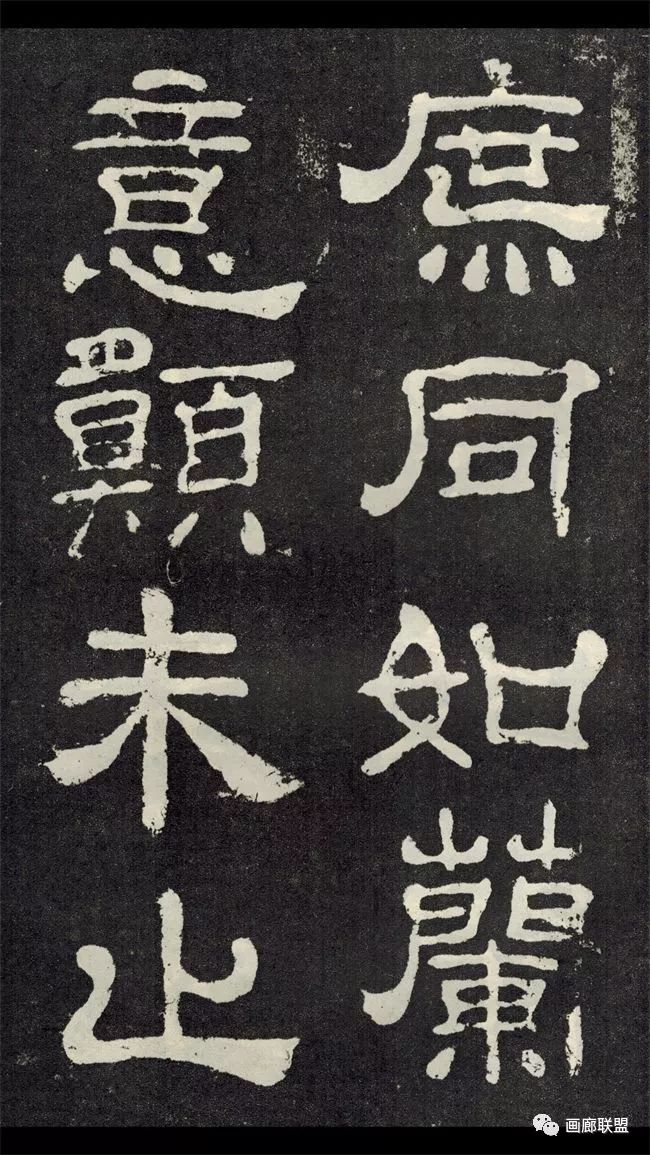 庶同如蘭
意願未止
画廊联盟